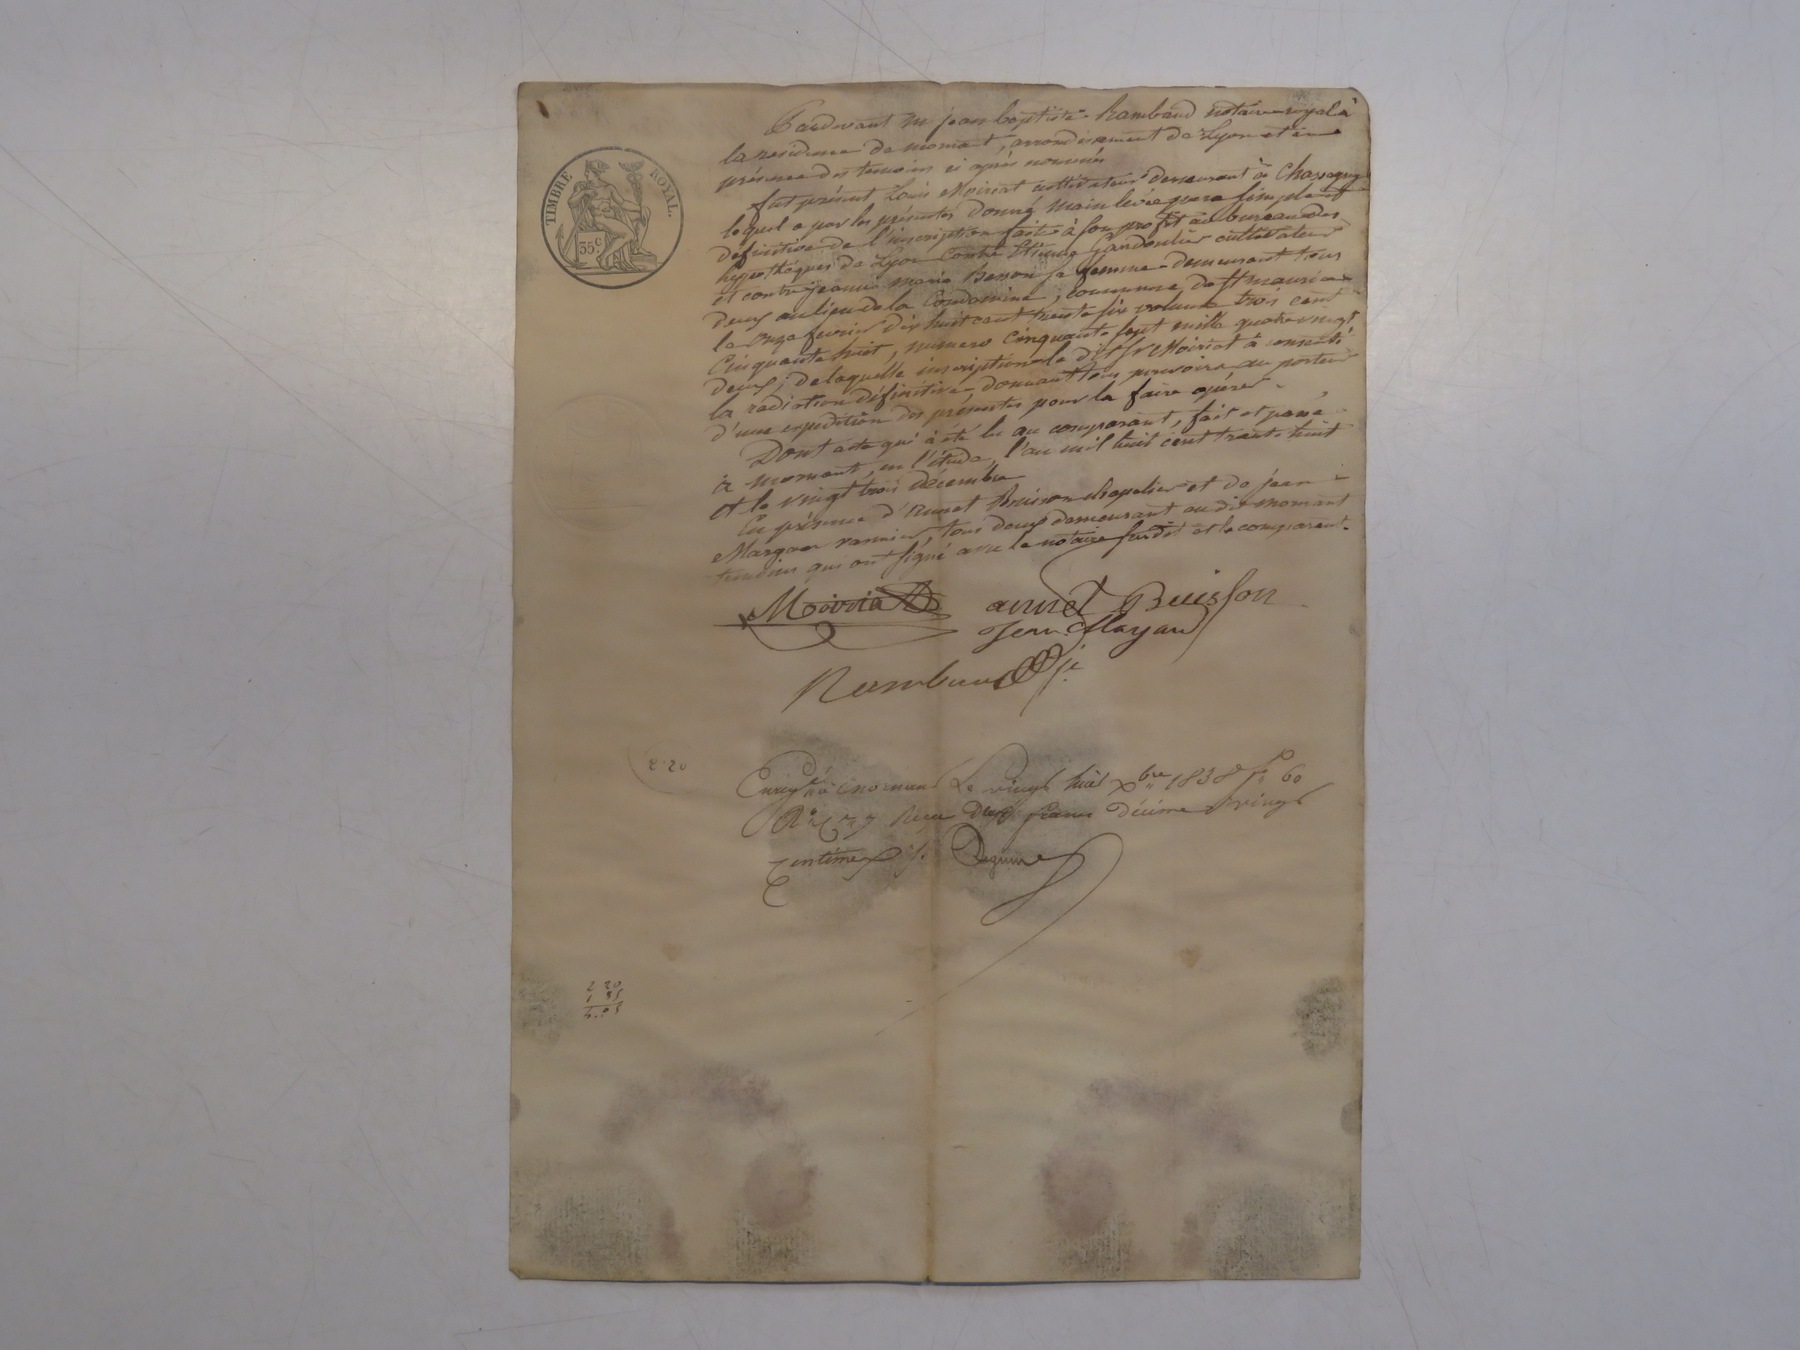 TIMBRE ROYAL.
35 c
Pardevant Me jean baptiste Rambaud notaire royal à
la residence de mornant, arrondissement de Lyon et en
présence des temoins ci après nommés
fut présent Louis Moiriat cultivateur demeurant à Chassagny
lequel a par les présentes donné main levée pure simple et
définitive de l'inscription faite à son profit au bureau des
hypothèques de Lyon contre Etienne Gandoulier cultivateur
et contre jeanne marie Besson sa femme demeurant tous
deux au lieu de la Condamine, commune de St maurice
le onze fevrier dix huit cent trente six volume trois cent
cinquante huit, numero cinquante sept mille quatre vingt
deux; de laquelle inscription le dit Sr Moiriat à consenti
la radiation définitive, donnant tous pouvoirs au porteur
d'une expedition des présentes pour la faire opérer
Dont acte qui à été lu au comparant, fait et passé
à mornant, en l'étude, l'an mil huit cent trente huit
et le vingt trois décembre
En présence d'annet Buisson chapelier et de jean
vannier, tous deux demeurant au dit mornant
temoins qui ont signé avec le notaire susdit et le comparant.
Moiriat annet Buisson
Jean
Rambaud
2 20
Enregtré à mornant Le vingt huit Xbre 1838 fo 60
Ro Reçu Deux francs décime vingt
centimes
2 20
1 85
4. 05